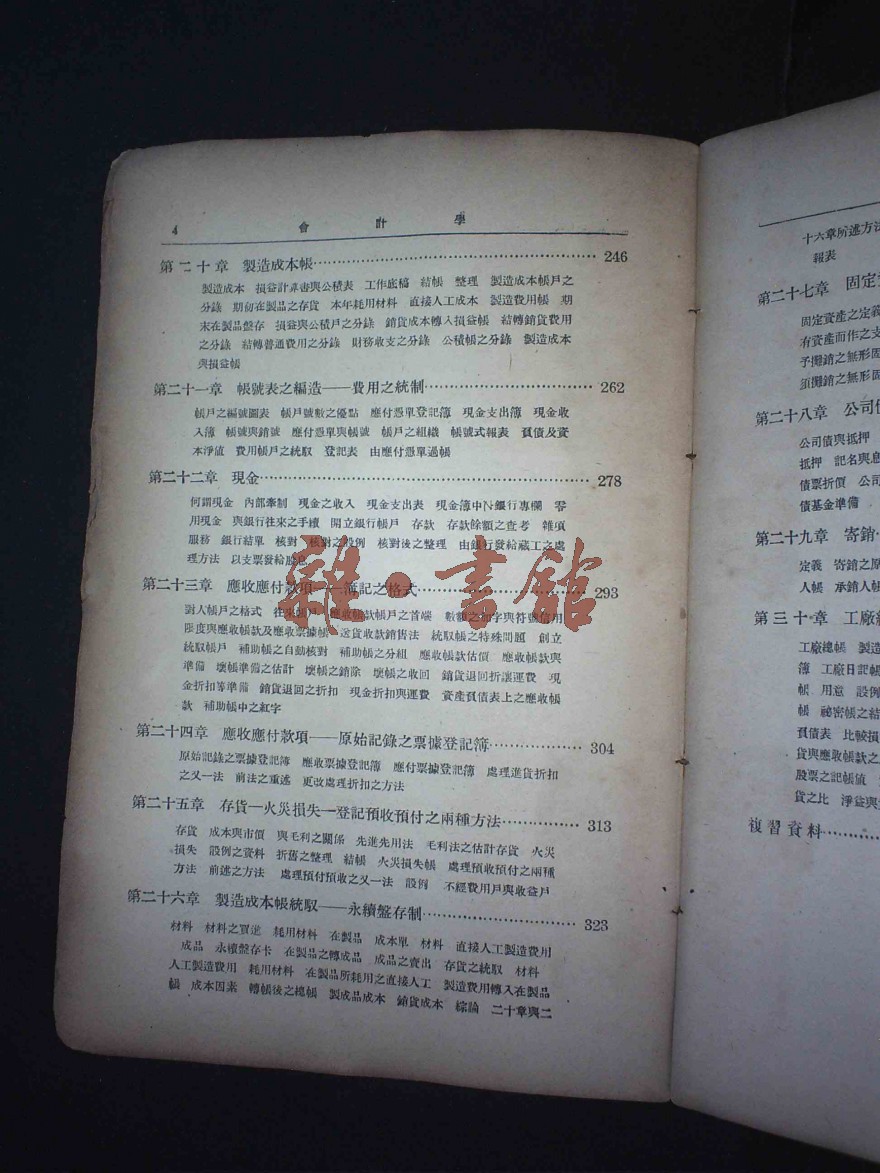 4 會計學
第二十章 製造成本帳 246
製造成本 損益計算書與公積表 工作底稿 結帳 整理 製造成本帳戶之
分錄 期初在製品之存貨 本年耗用材料 直接人工成本 製造費用帳 期
末在製品盤存 損益與公積戶之分錄 銷貨成本轉入損益帳 結轉銷貨費用
之分錄 結轉普通費用之分錄 財務收支之分錄 公積帳之分錄 製造成本
與損益帳
第二十一章 帳號表之編造——費用之統制 262
帳戶之編號圖表 帳戶號數之優點 應付憑單登記簿 現金支出簿 現金收
入簿 帳號與銷號 應付憑單與帳號 帳戶之組織 帳號式報表 負債及資
本淨值 費用帳戶之統馭 登記表 由應付憑單過帳
第二十二章 現金 278
何謂現金 內部牽制 現金之收入 現金支出表 現金簿中之銀行專欄 零
用現金 與銀行往來之手續 開立銀行帳戶 存款 存款餘額之查考 雜項
服務 銀行結單 核對 核對之設例 核對後之整理 由銀行發給藏工之處
理方法 以支票發給股息
第二十三章 應收應付款項——簿記之格式 293
對人帳戶之格式 往來帳戶 應收帳款帳戶之首端 數額之和字與符號信用
限度與應收帳款及應收票據帳 送貨收款銷售法 統馭帳之特殊問題 創立
統馭帳戶 補助帳之自動核對 補助帳之分組 應收帳款估價 應收帳款與
準備 壞帳準備之估計 壞帳之銷除 壞帳之收回 銷貨退回折讓運費 現
金折扣等準備 銷貨退回之折扣 現金折扣與運費 資產負債表上之應收帳
款 補助帳中之紅字
第二十四章 應收應付款項——原始記錄之票據登記簿 304
原始記錄之票據登記簿 應收票據登記簿 應付票據登記簿 處理進貨折扣
之又一法 前法之重述 更改處理折扣之方法
第二十五章 存貨—火災損失—登記預收預付之兩種方法 313
存貨 成本與市價 與毛利之關係 先進先用法 毛利法之估計存貨 火災
損失 設例之資料 折舊之整理 結帳 火災損失帳 處理預收預付之兩種
方法 前述之方法 處理預付預收之又一法 設例 不經費用戶與收益戶
第二十六章 製造成本帳統馭——永續盤存制 323
材料 材料之買進 耗用材料 在製品 成本單 材料 直接人工製造費用
成品 永續盤存卡 在製品之轉成品 成品之賣出 存貨之統馭 材料
人工製造費用 耗用材料 在製品所耗用之直接人工 製造費用轉入在製品
帳 成本因素 轉帳後之總帳 製成品成本 銷貨成本 綜論 二十章與二
十六章所述方法
報表
第二十七章 固定資
固定資產之定義
有資產而作之支
予攤銷之無形固
須攤銷之無形固
第二十八章 公司債
公司債與抵押
抵押 記名與息
債票折價 公司
債基金準備
第二十九章 寄銷
定義 寄銷之原
人帳 承銷人帳
第三十章 工廠
工廠總帳 製造
簿 工廠日記帳
帳 用意 設例
帳 祕密帳之結
負債表 比較損
貨與應收帳款之
股票之記帳值
貨之比 淨益與
複習資料
雜·書館